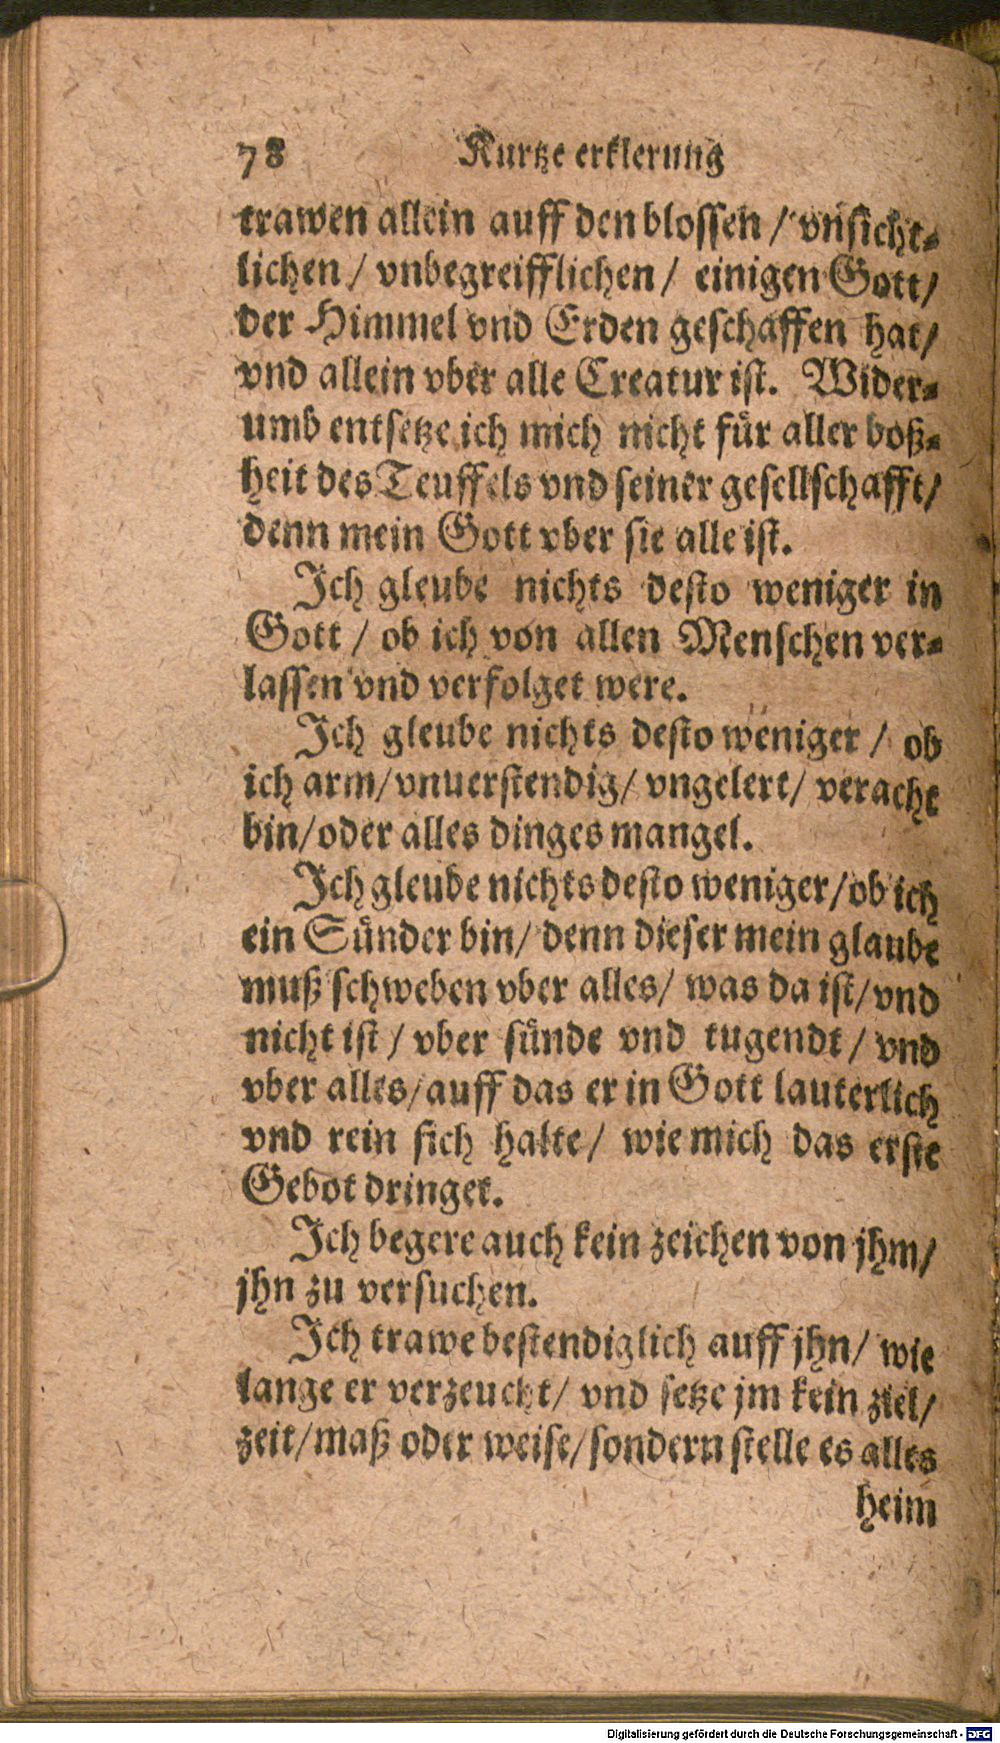 78 Kurtze erklerung
trawen allein auff den blossen / vnsicht⸗
lichen / vnbegreifflichen / einigen Gott/
der Himmel vnd Erden geschaffen hat/
vnd allein vber alle Creatur ist. Wider⸗
umb entsetze ich mich nicht für aller boß⸗
heit des Teuffels vnd seiner gesellschafft/
denn mein Gott vber sie alle ist.
Ich gleube nichts desto weniger in
Gott / ob ich von allen Menschen ver⸗
lassen vnd verfolget were.
Ich gleube nichts desto weniger / ob
ich arm/ vnuerstendig/ vngelert/ veracht
bin/ oder alles dinges mangel.
Ich gleube nichts desto weniger/ ob ich
ein Sünder bin/ denn dieser mein glaube
muß schweben vber alles/ was da ist/ vnd
nicht ist / vber sünde vnd tugendt / vnd
vber alles/ auff das er in Gott lauterlich
vnd rein sich halte/ wie mich das erste
Gebot dringet.
Ich begere auch kein zeichen von jhm/
jhn zu versuchen.
Ich trawe bestendiglich auff jhn/ wie
lange er verzeucht/ vnd setze jm kein ziel/
zeit/ maß oder weise/ sondern stelle es alles
heim
Digitalisierung gefördert durch die Deutsche Forschungsgemeinschaft - DFG